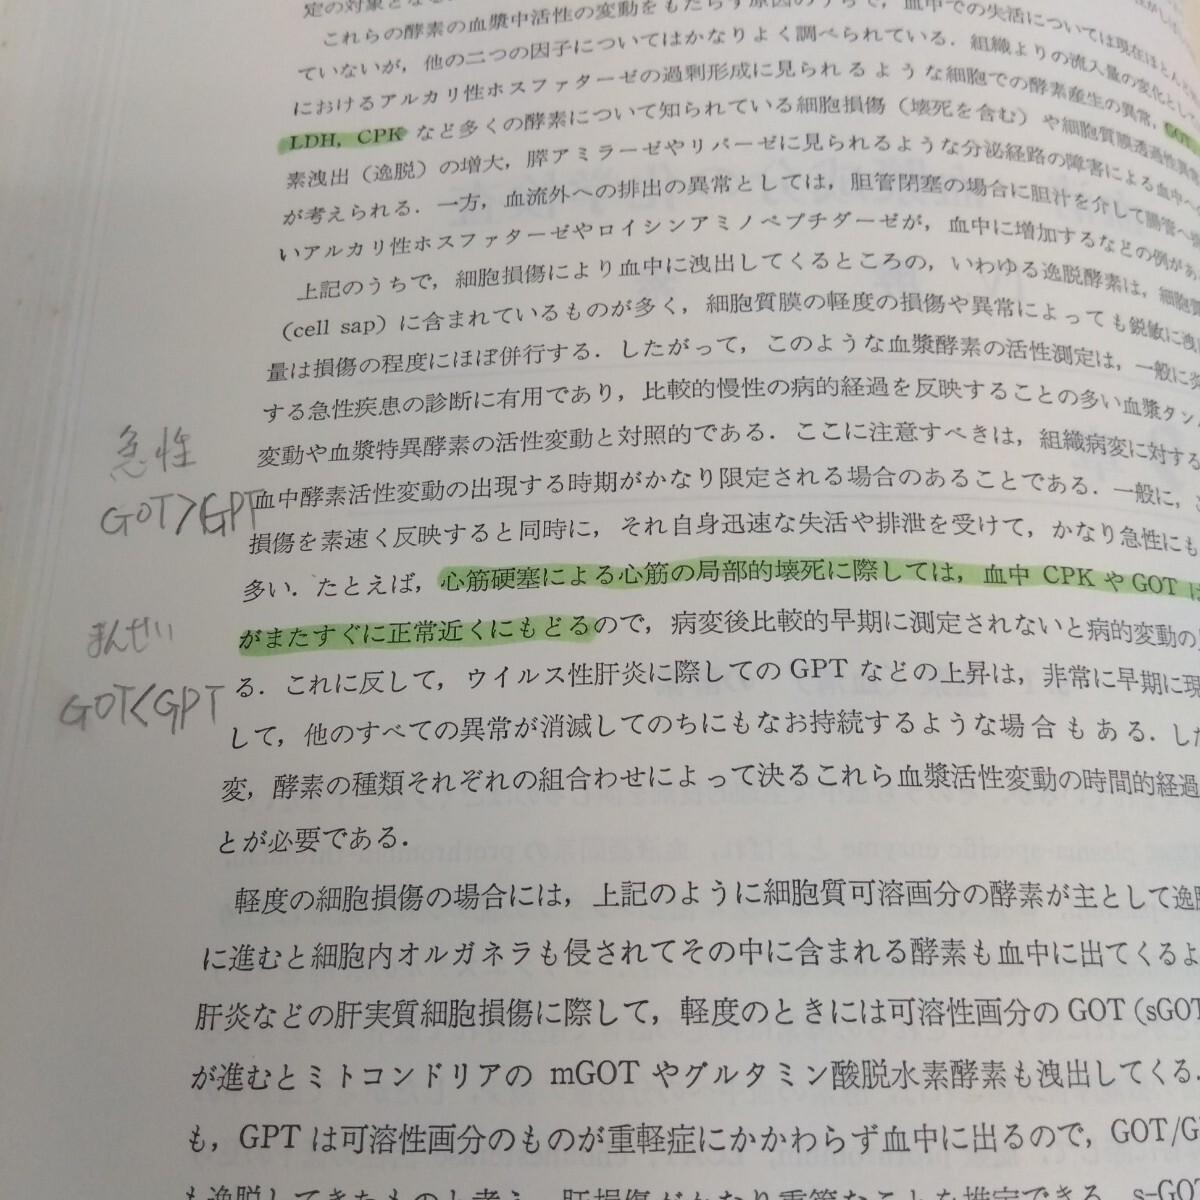 これらの酵素の血漿中活性の変動をもたらす原因のうちで，血中での失活については現在ほとんど
ていないが，他の二つの因子についてはかなりよく調べられている．組織よりの流入量の変化とし
におけるアルカリ性ホスファターゼの過剰形成に見られるような細胞での酵素産生の異常，GOT
LDH，CPK など多くの酵素について知られている細胞損傷（壊死を含む）や細胞質膜透過性異常
素洩出（逸脱）の増大，膵アミラーゼやリパーゼに見られるような分泌経路の障害による血中への
が考えられる．一方，血流外への排出の異常としては，胆管閉塞の場合に胆汁を介して腸管へ
いアルカリ性ホスファターゼやロイシンアミノペプチダーゼが，血中に増加するなどの例があ
上記のうちで，細胞損傷により血中に洩出してくるところの，いわゆる逸脱酵素は，細胞
（cell sap）に含まれているものが多く，細胞質膜の軽度の損傷や異常によっても鋭敏に洩
量は損傷の程度にほぼ併行する．したがって，このような血漿酵素の活性測定は，一般に
する急性疾患の診断に有用であり，比較的慢性の病的経過を反映することの多い血漿タン
変動や血漿特異酵素の活性変動と対照的である．ここに注意すべきは，組織病変に対する
急性
GOT>GPT
血中酵素活性変動の出現する時期がかなり限定される場合のあることである．一般に，
損傷を素速く反映すると同時に，それ自身迅速な失活や排泄を受けて，かなり急性にも
多い．たとえば，心筋硬塞による心筋の局部的壊死に際しては，血中 CPK や GOT は
がまたすぐに正常近くにもどるので，病変後比較的早期に測定されないと病的変動の
まんせい
GOT<GPT
る．これに反して，ウイルス性肝炎に際しての GPT などの上昇は，非常に早期に現
して，他のすべての異常が消滅してのちにもなお持続するような場合もある．した
変，酵素の種類それぞれの組合わせによって決るこれら血漿活性変動の時間的経過
とが必要である．
軽度の細胞損傷の場合には，上記のように細胞質可溶画分の酵素が主として逸脱
に進むと細胞内オルガネラも侵されてその中に含まれる酵素も血中に出てくるよ
肝炎などの肝実質細胞損傷に際して，軽度のときには可溶性画分の GOT（sGOT
が進むとミトコンドリアの mGOT やグルタミン酸脱水素酵素も洩出してくる．
も，GPT は可溶性画分のものが重軽症にかかわらず血中に出るので，GOT/G
も逸脱してきたものと考え，肝損傷がかなり重篤なことを推定できる．s-GO